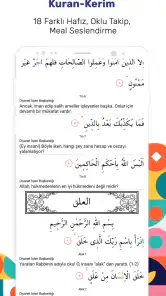 Kuran-Kerim
18 Farklı Hafız, Oklu Takip,
Meal Seslendirme
الا الذين امنوا وعملوا الصالحات فلهم اجر غير
ممنون
Diyanet İşleri Başkanlığı:
Ancak, inanıp salih ameller işleyenler başka. Onlar için devamlı bir mükafat vardır.
فما يكذبك بعد بالدين
Diyanet İşleri Başkanlığı:
(Ey insan!) Böyle iken, hangi şey sana hesap ve cezayı yalanlatıyor?
اليس الله باحكم الحاكمين
Diyanet İşleri Başkanlığı:
Allah, hükmedenlerin en iyi hükmedeni değil midir?
العلق
بسم الله الرحمن الرحيم
اقرأ باسم ربك الذي خلق
Diyanet İşleri Başkanlığı:
Yaratan Rabbinin adıyla oku! O, insanı "alak" dan yarattı. (1-2)
خلق الانسان من علق